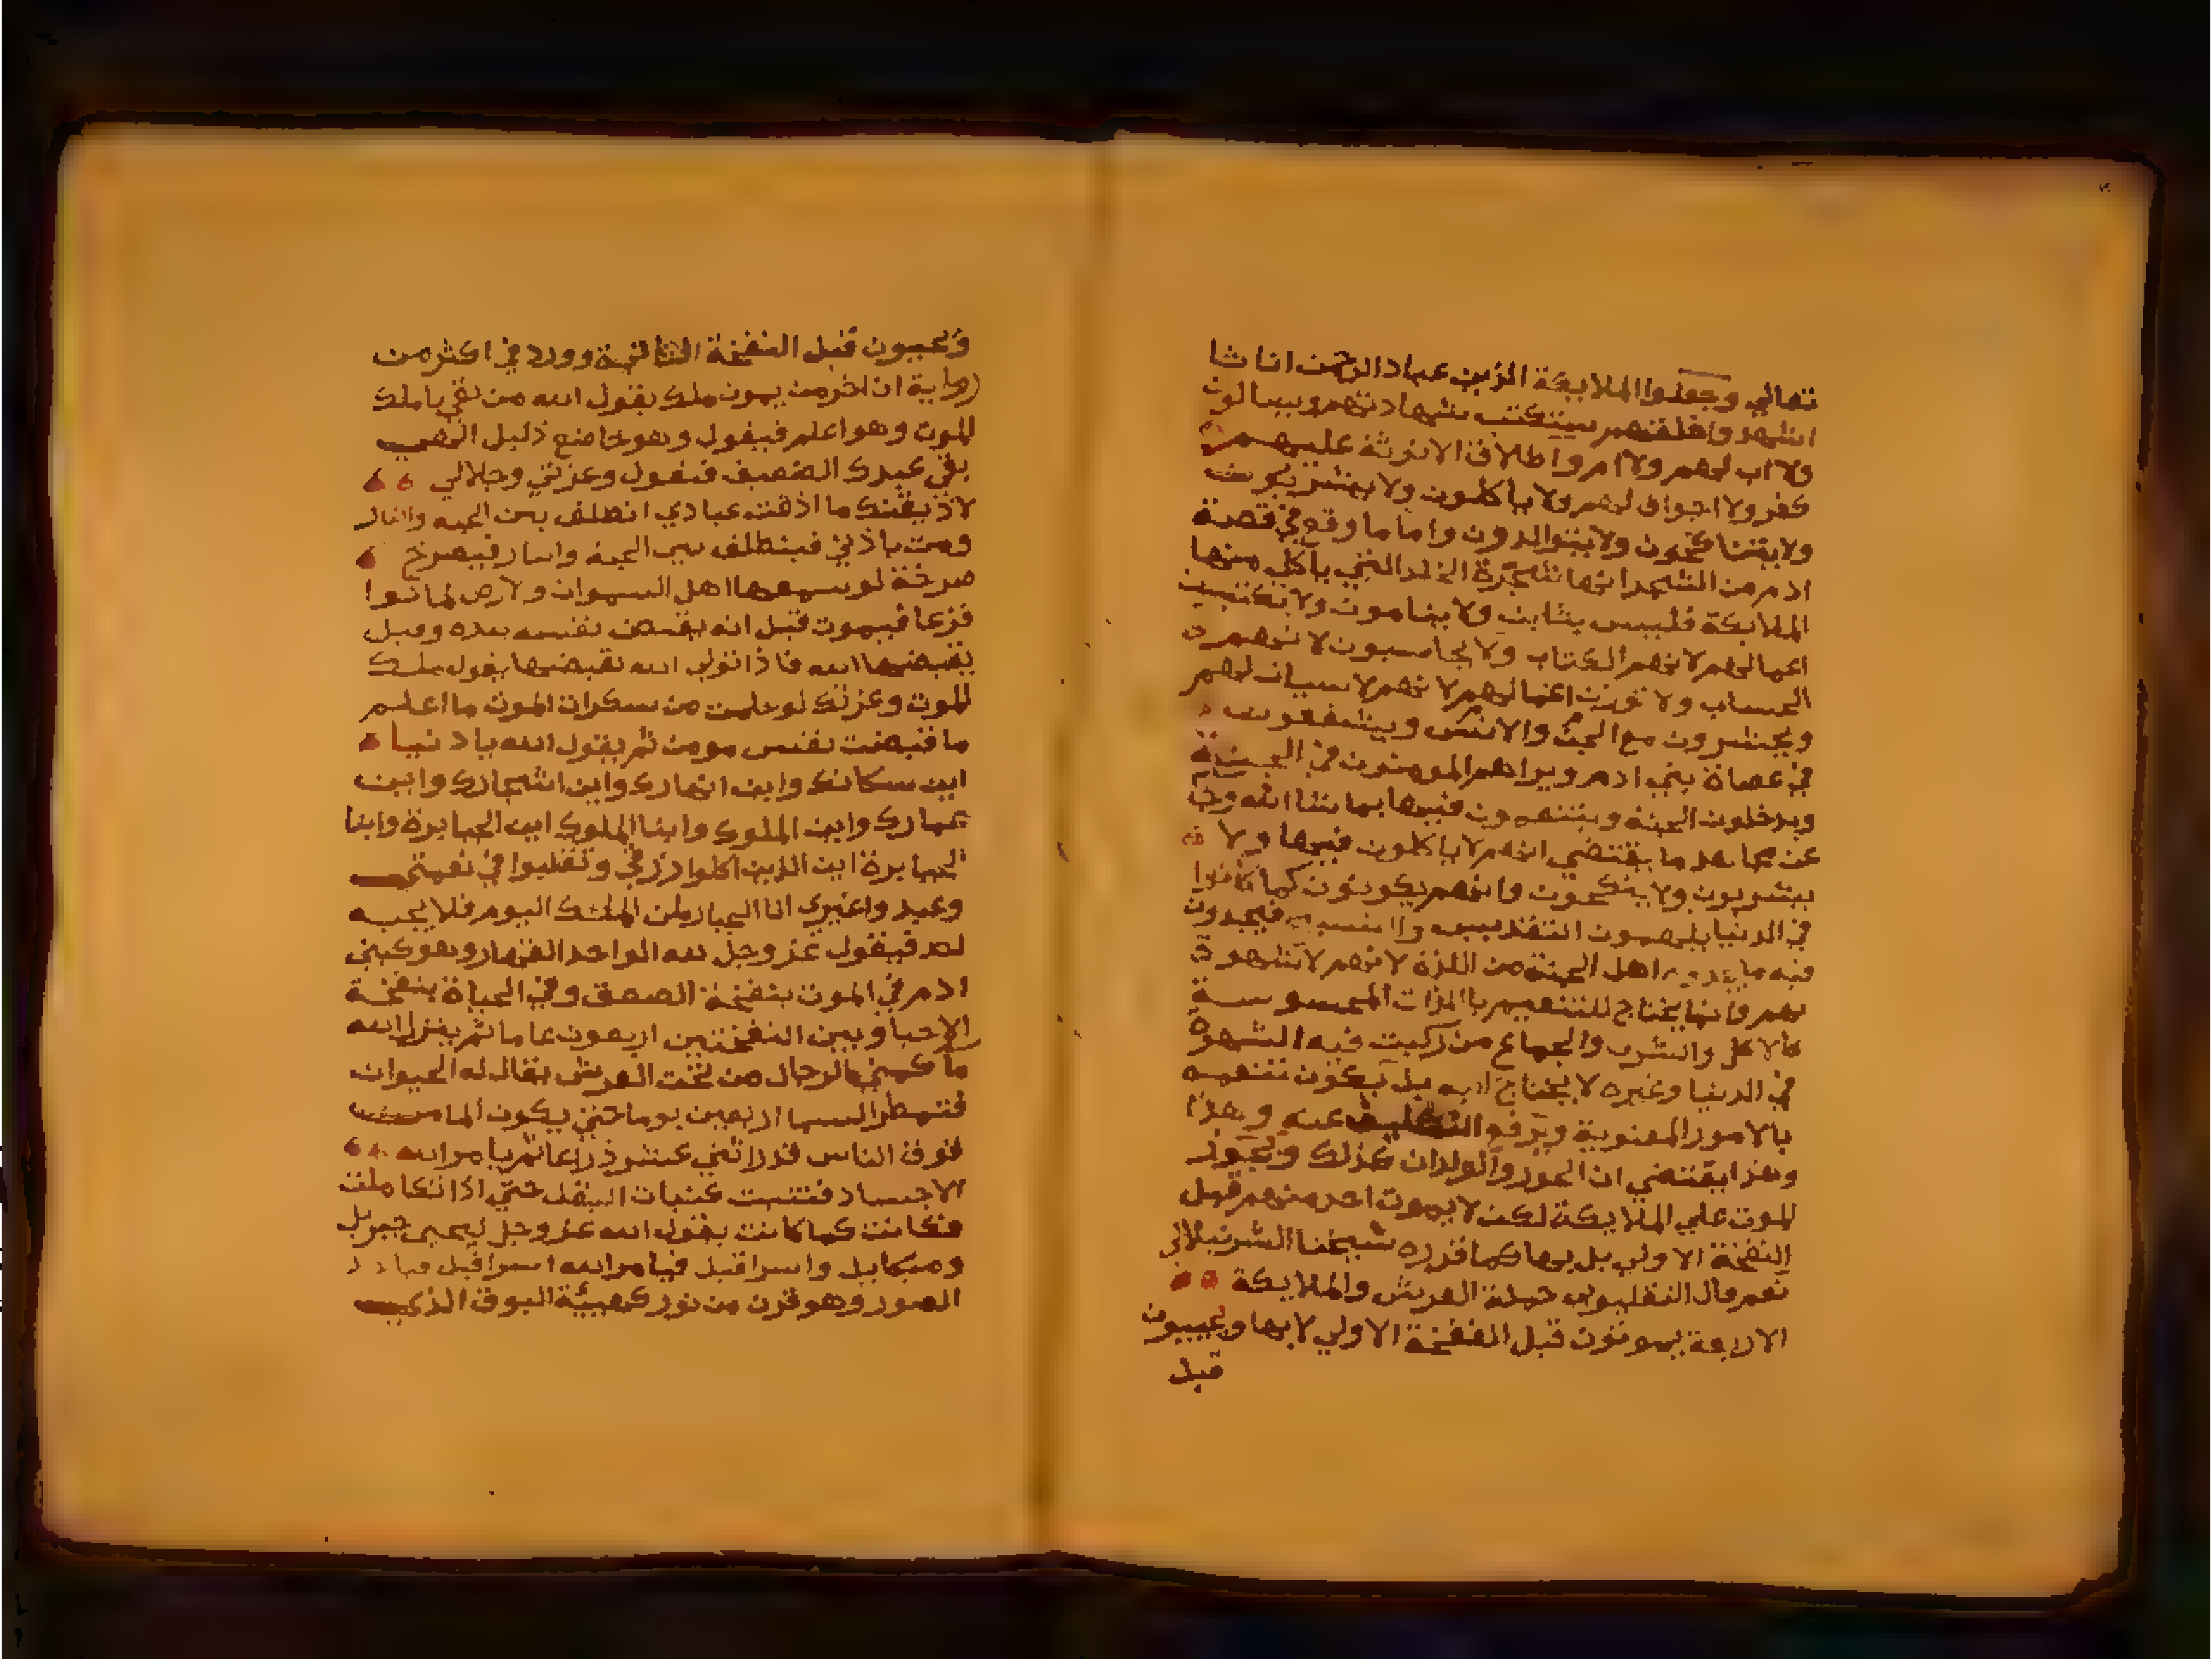 تعالي وجعلوا الملايكة الذين عباد الرحمن اناثا
اشهدوا خلقهم ستكتب شهادتهم ويسالون
ولا اب لهم ولا ام واطلاق الانوثة عليهم
كفر ولا اجواف لهم ولا ياكلون ولا يشربون
ولا يتناكحون ولا يتوالدون واما ما وقع في قصة
ادم من الشجر انها شجرة الخلد التي ياكل منها
الملايكة فليس بثابت ولا ينامون ولا تكتب
اعمالهم لانهم الكتاب ولا يحاسبون لانهم
الحساب ولا توزن اعمالهم لانهم لا سيات لهم
ويحشرون مع الجن والانس ويشفعون
في عصاة بني ادم ويراهم المومنون في الجنة
ويدخلون الجنة ويتنعمون فيها بما شا الله وجا
عن مجاهد ما يقتضي انهم لا ياكلون فيها ولا
يشربون ولا ينكحون وانهم يكونون كما كانوا
في الدنيا يلهمون التقديس والتسبيح فيجدون
فيه ما يجده اهل الجنة من اللذة لانهم لا شهوة
لهم وانما يحتاج للتنعيم باللذات المحسوسة
كالاكل والشرب والجماع من ركبت فيه الشهوة
في الدنيا وغيره لا يحتاج اليه بل يكون تنعمه
بالامور المعنوية ويرفع التكليف عنه وهذا
وهذا يقتضي ان الحور والولدان كذلك ويجوز
الموت علي الملايكة لكن لا يموت احد منهم قبل
النفخة الاولي بل بها كما قرره شيخنا الشرنبلالي
نعم قال الثعلبي حملة العرش والملايكة
الاربعة يموتون قبل النفخة الاولي لا بها ويحيون
قبل
ويحيون قبل النفخة الثانية وورد في اكثر من
رواية ان اخر من يموت ملك يقول الله من بقي يا ملك
الموت وهو اعلم فيقول وهو خاضع ذليل الهي
بقي عبدك الضعيف فيقول وعزتي وجلالي
لاذيقنك ما اذقت عبادي انطلق بين الجنة والنار
ومت باذني فينطلق بين الجنة والنار فيصرخ
صرخة لو سمعها اهل السموات والارض لماتوا
فزعا فيموت قيل انه يقبض نفسه بيده وقيل
يقبضها الله فاذا تولي الله تقبضها يقول ملك
الموت وعزتك لو علمت من سكرات الموت ما اعلم
ما قبضت نفس مومن ثم يقول الله يا دنيا
اين سكانك واين انهارك واين اشجارك واين
عمارك واين الملوك وابنا الملوك اين الجبابرة وابنا
الجبابرة اين الذين اكلوا رزقي وتقلبوا في نعمتي
وعبدوا غيري انا الجبار لمن الملك اليوم فلا يجيبه
احد فيقول عز وجل لله الواحد القهار وهو كبني
ادم في الموت بنفخة الصعق وفي الحياة بنفخة
الاحيا وبين النفختين اربعون عاما ثم ينزل الله
ما كمني الرجال من تحت العرش يقال له الحيوان
فتمطر السما اربعين يوما حتي يكون الما من
فوق الناس قدر اثني عشر ذراعا ثم يامر الله
الاجساد فتنبت كنبات البقل حتي اذا تكاملت
فكانت كما كانت يقول الله عز وجل ليحيي جبريل
وميكايل واسرافيل فيامر الله اسرافيل فياخذ
الصور وهو قرن من نور كهيئة البوق الذي